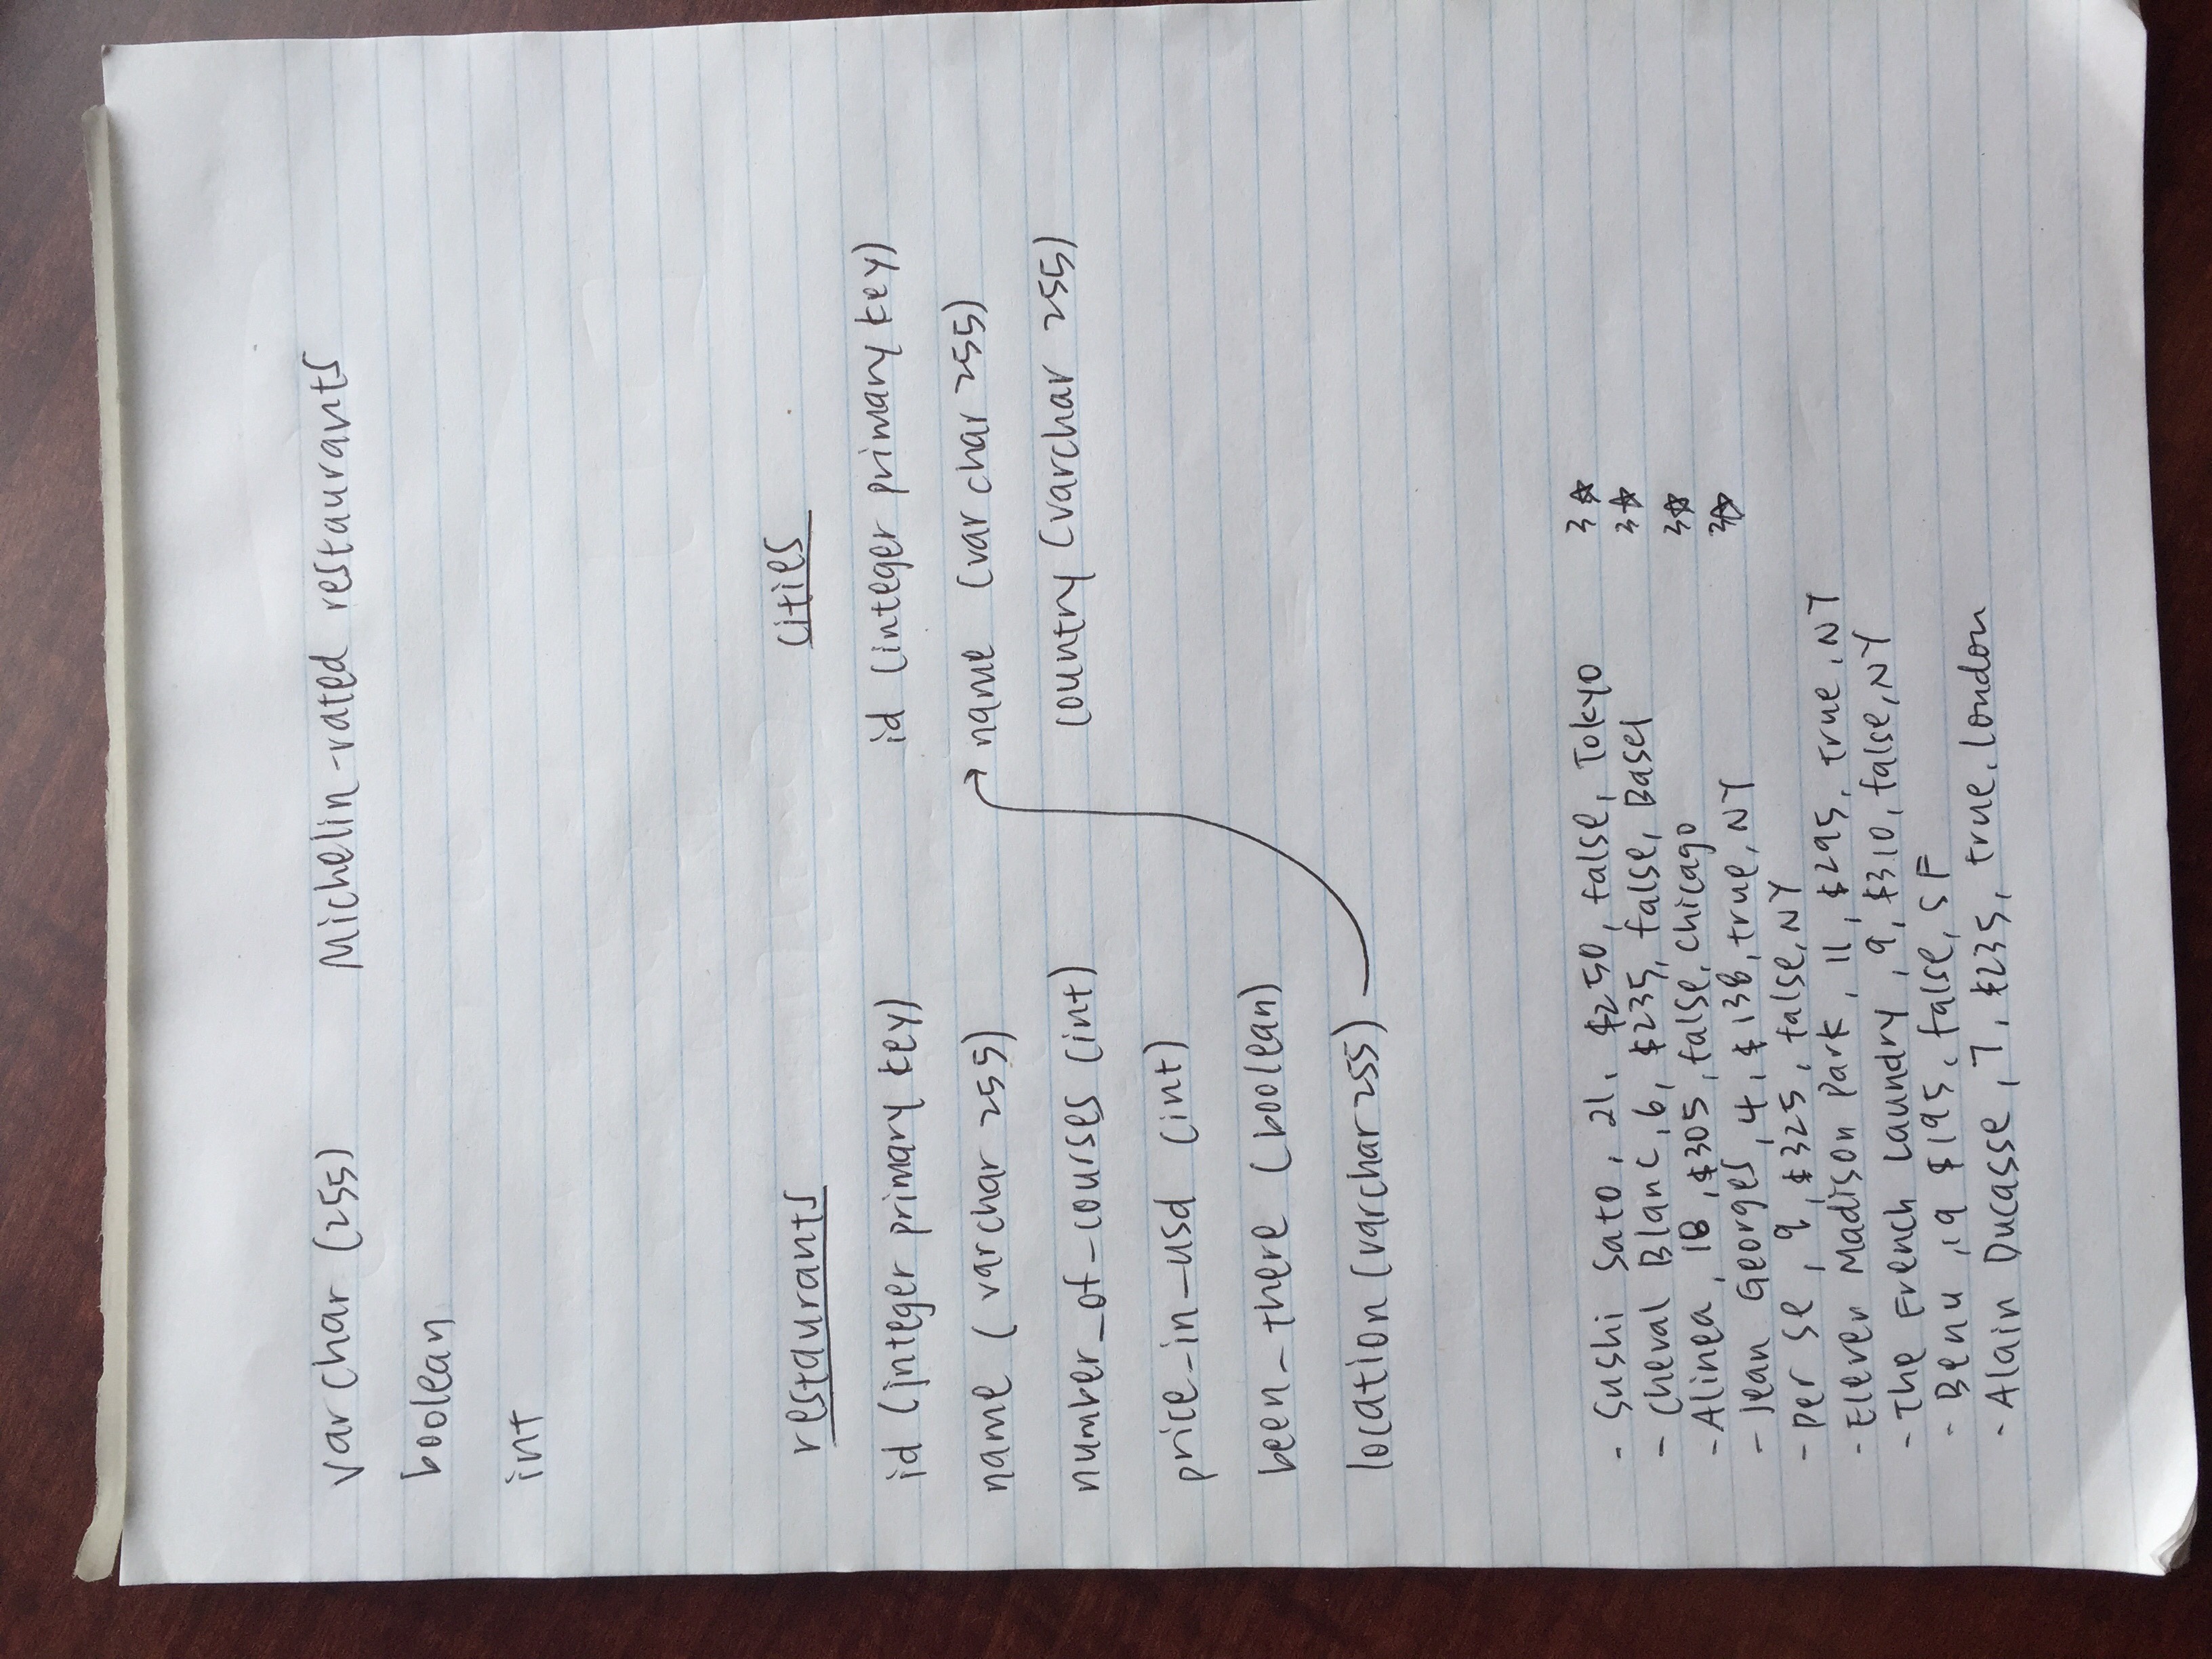 varchar (255) Michelin-rated restaurants
boolean
int
restaurants
id (integer primary key)
name (varchar 255)
number_of_courses (int)
price_in_usd (int)
been_there (boolean)
location (varchar 255)
cities
id (integer primary key)
name (varchar 255)
country (varchar 255)
- Sushi Sato, 21, $250, false, Tokyo 3☆
- Cheval Blanc, 6, $235, false, Basel 3☆
- Alinea, 18, $305, false, Chicago 3☆
- Jean Georges, 4, $138, true, NY 3☆
- per se, 9, $325, false, NY
- Eleven Madison Park, 11, $295, true, NY
- The French Laundry, 9, $310, false, NY
- Benu, 19 $195, false, SF
- Alain Ducasse, 7, $235, true, London